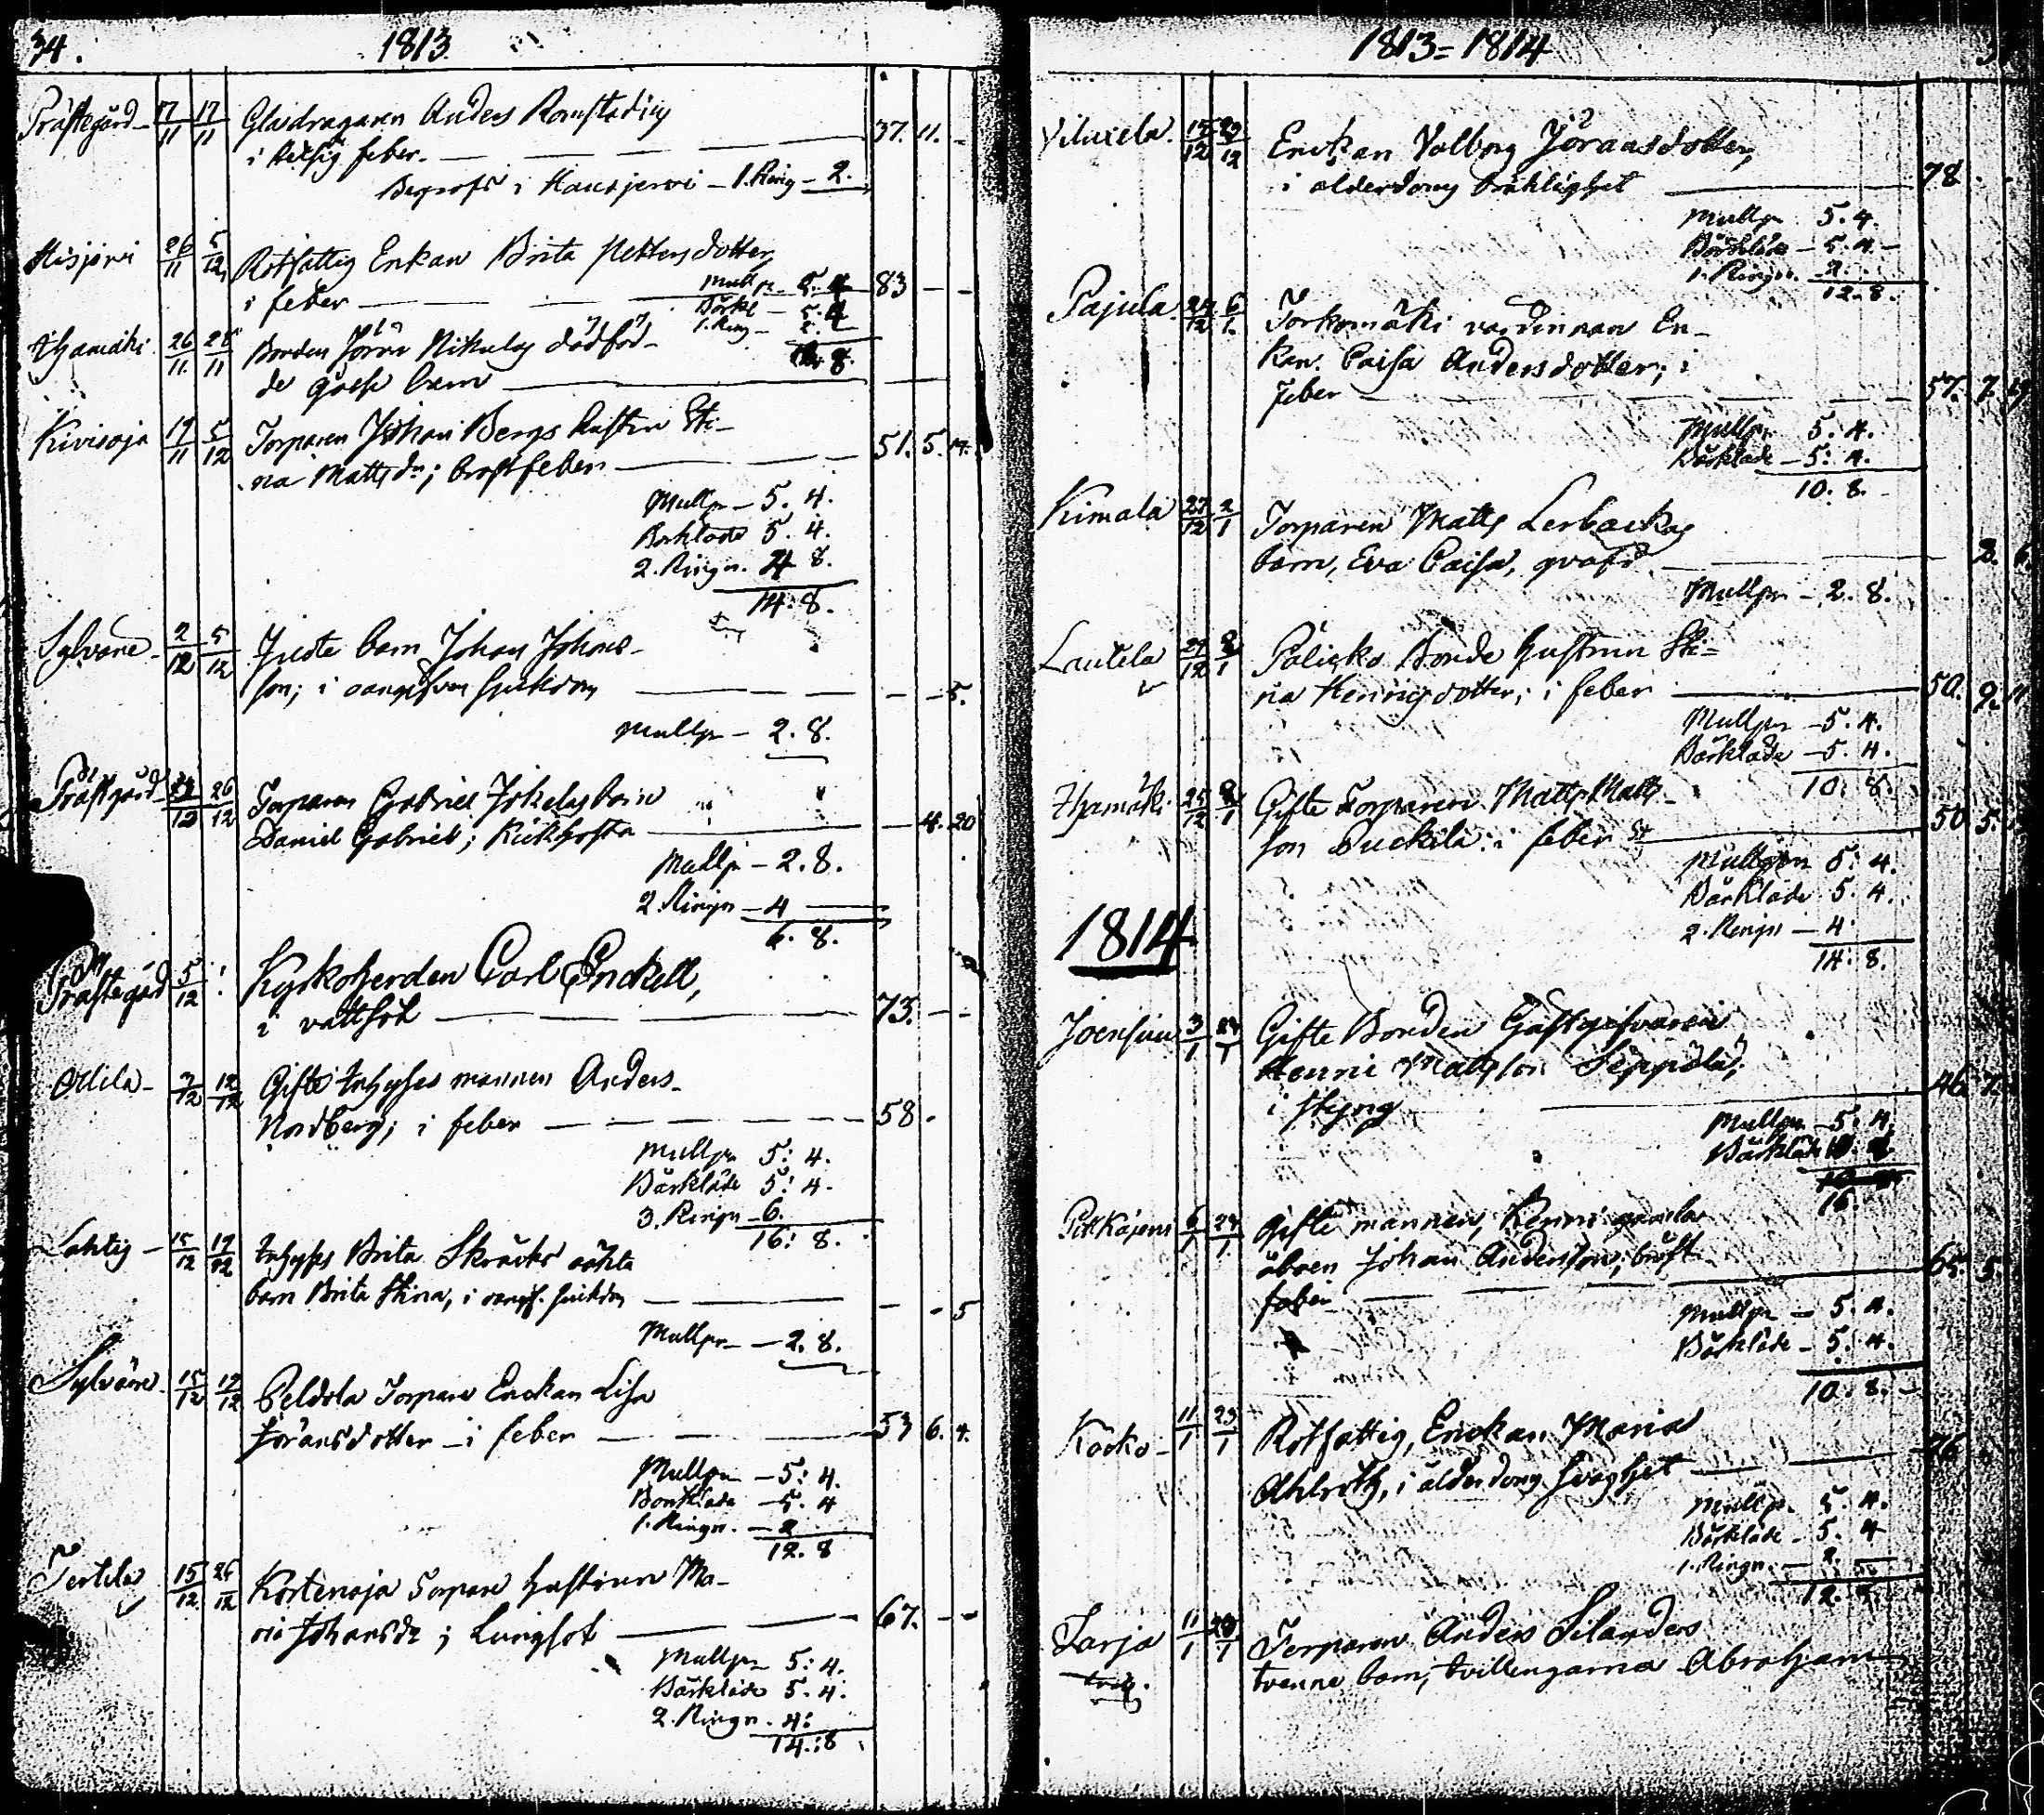 34. 1813
Prästegård 17/11 17/11 Glasdragaren Anders
i Hetsig feber. 37. 11. -
Begrofs i Hausjerwi - 1. Ring - 2.
Hisjärvi 26/11 5/12 Rotfattig Enkan Brita Pettersdotter
i feber 83 - -
Mullp. 5. 4
Bårkl - 5. 4
1. Ring - 2.
12. 8.
26/11 28/11 Bonden Nikulas dödföd-
de gosse barn
Kivioja 19/11 5/12 Torparen Johan Bergs hustru Sti-
na Mattsdr; bröstfeber 51. 5. 14.
Mullpn - 5. 4.
Bårkläde 5. 4.
2. Ringn. 4 8.
14. 8.
Sylväne 2/12 5/12 barn Johan Johans-
son; i oangifven sjukdom - - 5.
Mullpn - 2. 8.
Prästgård 26/12 Torparen Gabriel barn
Daniel Gabriel; Kikhosta - 4. 20
Mullpn - 2. 8.
2. Ringn - 4
6. 8.
Prästegård 5/12 Kyrkoherden Carl Enckell,
i vattsot 73. - -
Ollila - 7/12 12/12 Gifte Inhyses mannen Anders
Nordberg; i feber 58 -
Mullpn 5: 4.
Bårkläde 5: 4.
3. Ringn - 6.
16: 8.
Lahtis - 15/12 19/12 Inhyses Brita oäkta
barn Brita Stina, i oangif. sjukdom - - 5
Mullpn - 2. 8.
Sylväne 15/12 19/12 Peldola Torpare Enckan Lisa
Jöransdotter - i feber 53 6. 4.
Mullpn - 5: 4.
Bårkläde - 5. 4
1. Ringn. - 2
12. 8
Tertila 15/12 26/12 Kortenoja Torpare hustrun Ma-
ria Johansdr; Lungsot 67. - -
Mullpn 5: 4.
Bårkläde 5. 4.
2. Ringn. 4:
14.: 8
1813 = 1814
15/12 29/12 Enckan Valborg Jöransdotter,
i ålderdoms bräklighet 78 - -
Mullpn 5. 4.
Bårkläde - 5. 4 -
1. Ringn. - 2.
12. 8.
Pajula 24/12 6/1 Torkomäki värdinnan En-
kan. Caisa Andersdotter; i
feber 57. 7.
Mullpn 5. 4.
Bårkläde - 5: 4.
10. 8.
Kimala 27/12 2/1 Torparen Matts Lerbackas
barn, Eva Caisa, 2. 6
Mullpn - 2. 8.
Lautela 27/12 Bonde hustrun Sti-
na Henrigsdotter; i feber 50. 9. 11
Mullpn - 5. 4.
Bårkläde - 5. 4.
10. 8.
25/12 Gifte Torparen Matts Matts-
son i feber 50 5.
Mullpn 5: 4.
Bårkläde 5. 4.
2. Ringn - 4.
14. 8.
1814
Joensuu 3/1 Gifte Bonden Gästgifvaren
Henric Mattsson Seppälä;
i styng 46. 7.
Mullpn - 5. 4.
Bårkläde
16.
6/1 Gifte mannen, gamla
åboen Johan Andersson; bröst-
feber 65. 5.
Mullpn - 5. 4.
Bårkläde - 5. 4.
10. 8. -
Kåcko - 11/1 23/1 Rotfattig, Enckan Maria
Ahlroth, i ålderdoms svaghet 76
Mullpn 5. 4.
Bårkläde - 5. 4
1. Ringn. - 2.
12.
Sarja 11/1 Torparen Anders Silanders
tvenne barn, tvillingarna Abraham